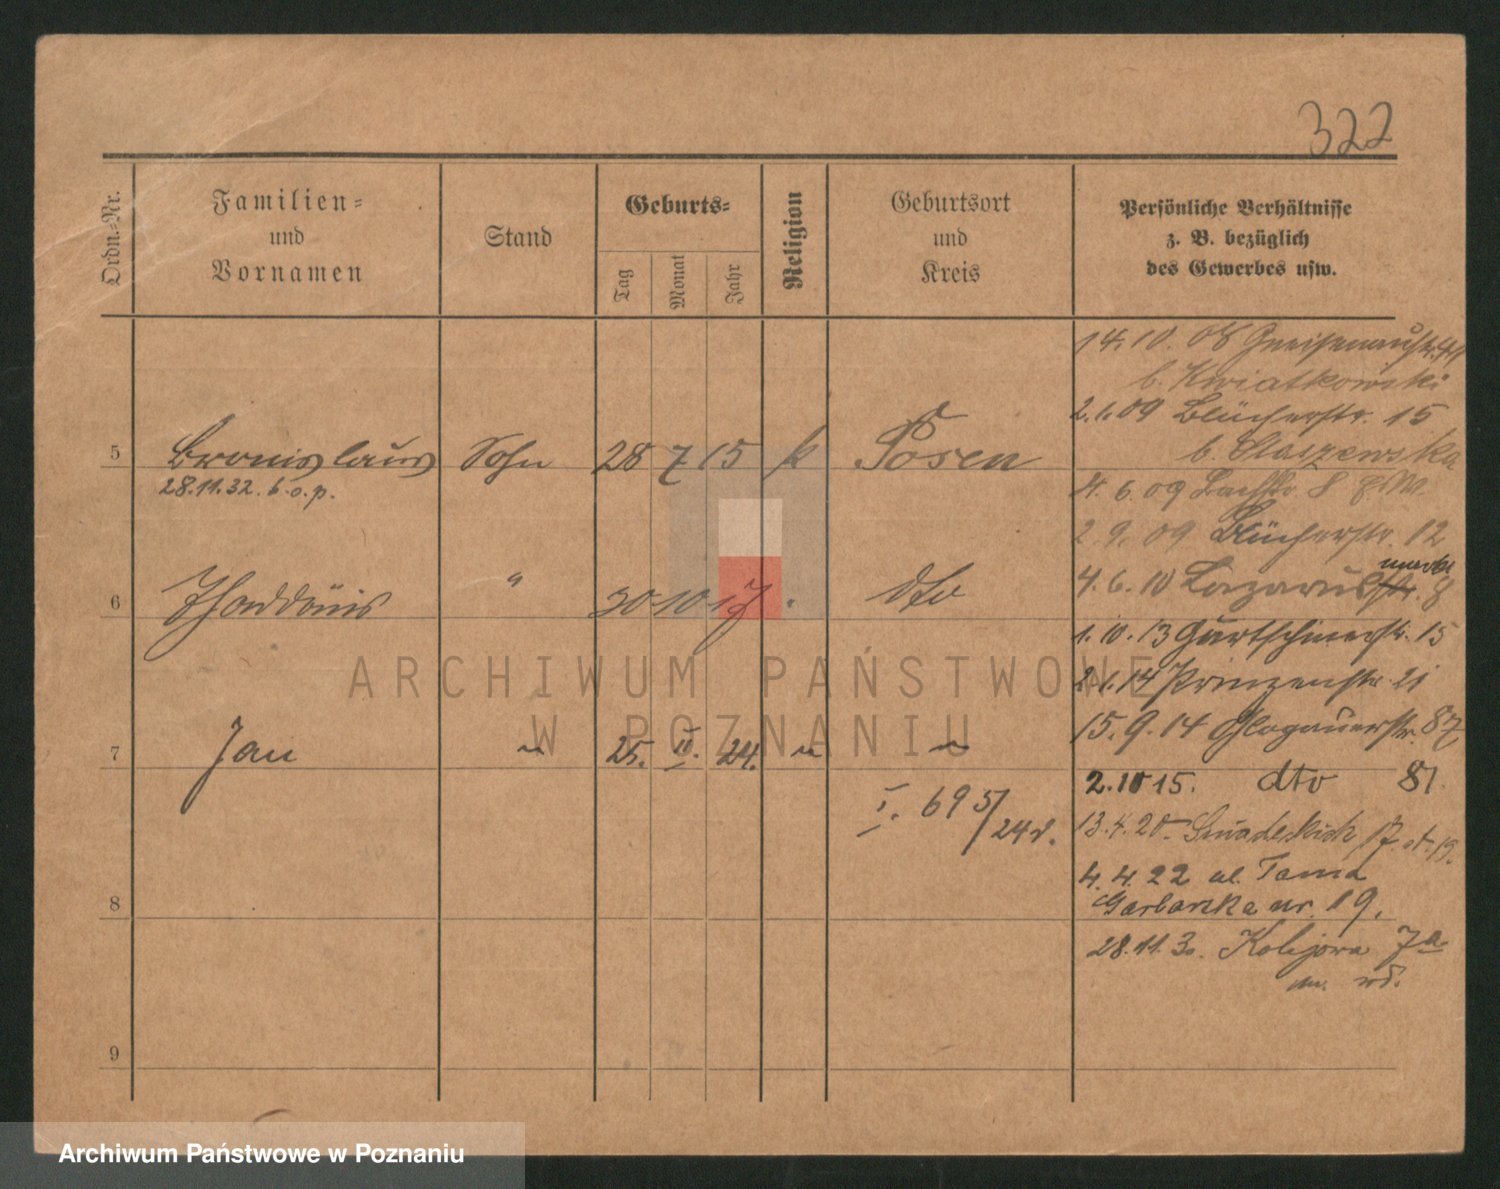 322
Ordn.-Nr.
Familien-
und
Vornamen
Stand
Geburts-
Tag
Monat
Jahr
Religion
Geburtsort
und
Kreis
Persönliche Verhältnisse
z. B. bezüglich
des Gewerbes usw.
14.10.08 Gneisenaustr.
b. Kwiatkowski
2.1.09 Blücherstr. 15
b. Staszewska
5 Bronislaus Sohn 28 7 15 k Posen
28.11.32. b.o.p.
4.6.09 Bachstr. 8
2.9.09 Blücherstr. 12
6 Thaddäus " 30 10 17 dto
4.6.10 Lazarus 8
1.10.13 Gurtschinerstr. 15
2.1.14 Prinzenstr. 21
15.9.14 Glogauerstr. 87
7 Jan 25. IV. 24.
2.10 15. dto 81.
I. 695/24 r.
13.4.20. Śniadeckich 17
4.4.22 ul. Tama
Garbarska nr. 19.
8
28.11.30. Kolejowa 7a
9
ARCHIWUM PAŃSTWOWE
W POZNANIU
Archiwum Państwowe w Poznaniu